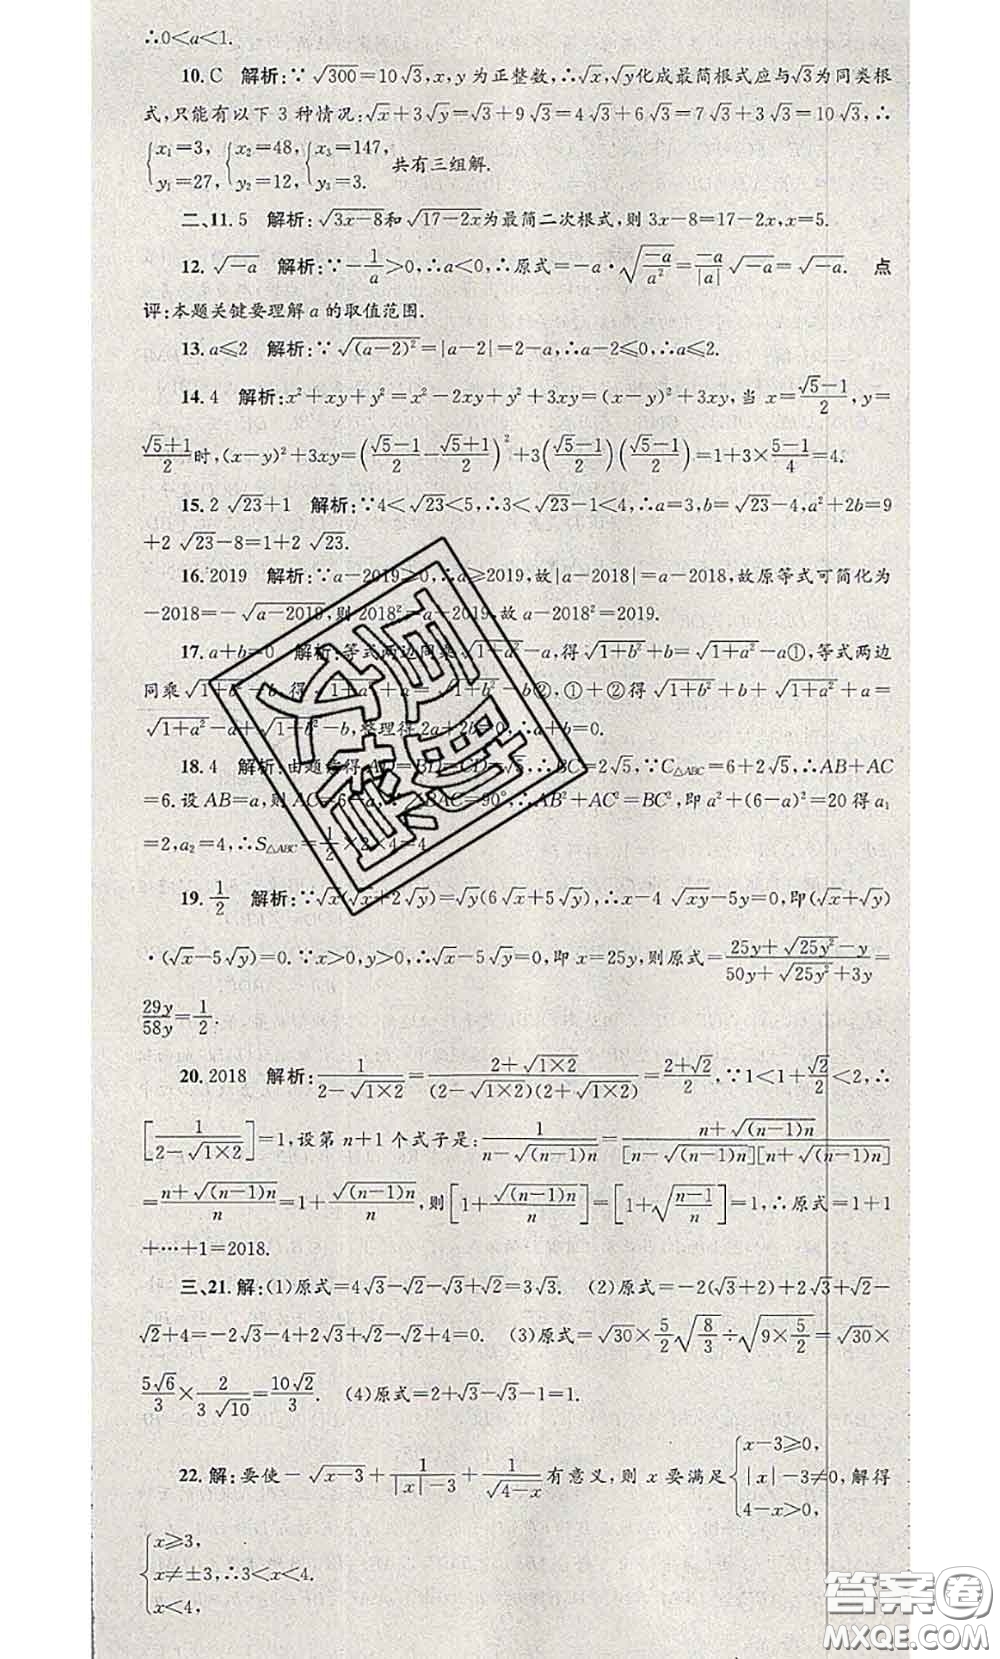 ∴0<a<1.
10. C 解析:∵√300=10√3,x,y为正整数,∴√x,√y化成最简根式应与√3为同类根
式,只能有以下3种情况:√x+3√y=√3+9√3=4√3+6√3=7√3+3√3=10√3,∴
{x₁=3, y₁=27, {x₂=48, y₂=12, {x₃=147, y₃=3. 共有三组解.
二、11. 5 解析:√(3x-8)和√(17-2x)为最简二次根式,则3x-8=17-2x,x=5.
12. √(-a) 解析:∵-1/a>0,∴a<0,∴原式=-a·√(-a/a²)=-a/|a|√(-a)=√(-a). 点
评:本题关键要理解a的取值范围.
13. a≤2 解析:∵√((a-2)²)=|a-2|=2-a,∴a-2≤0,∴a≤2.
14. 4 解析:x²+xy+y²=x²-2xy+y²+3xy=(x-y)²+3xy,当x=(√5-1)/2,y=
(√5+1)/2时,(x-y)²+3xy=((√5-1)/2-(√5+1)/2)²+3((√5-1)/2)((√5-1)/2)=1+3×(5-1)/4=4.
15. 2√23+1 解析:∵4<√23<5,∴3<√23-1<4,∴a=3,b=√23-4,a²+2b=9
+2√23-8=1+2√23.
16. 2019 解析:∵a-2019≥0,∴a≥2019,故|a-2018|=a-2018,故原等式可简化为
-2018=-√(a-2019),则2018²=a-2019,故a-2018²=2019.
17. a+b=0 解析:等式两边同乘√(1+a²)-a,得√(1+b²)+b=√(1+a²)-a①,等式两边
同乘√(1+b²)-b得√(1+a²)+a=√(1+b²)-b②,①+②得√(1+b²)+b+√(1+a²)+a=
√(1+a²)-a+√(1+b²)-b,整理得2a+2b=0,∴a+b=0.
18. 4 解析:由题意得AD=BD=CD=√5,∴BC=2√5,∵C△ABC=6+2√5,∴AB+AC
=6.设AB=a,则AC=6-a,∵∠BAC=90°,∴AB²+AC²=BC²,即a²+(6-a)²=20得a₁
=2,a₂=4,∴S△ABC=1/2×2×4=4
19. 1/2 解析:∵√x(√x+2√y)=√y(6√x+5√y),∴x-4√xy-5y=0,即(√x+√y)
·(√x-5√y)=0.∵x>0,y>0,∴√x-5√y=0,即x=25y,则原式=(25y+√(25y²)-y)/(50y+√(25y²)+3y)=
29y/58y=1/2.
20. 2018 解析:1/(2-√(1×2))=(2+√(1×2))/((2-√(1×2)(2+√(1×2))=(2+√2)/2,∵1<1+√2/2<2,∴
[1/(2-√(1×2))]=1,设第n+1个式子是:1/(n-√((n-1)n))=(n+√((n-1)n))/([n-√((n-1)n)][n+√((n-1)n)])
=(n+√((n-1)n))/n=1+√((n-1)n)/n,则[1+√((n-1)n)/n]=[1+√((n-1)/n)]=1,∴原式=1+1
+…+1=2018.
三、21. 解:(1)原式=4√3-√2-√3+√2=3√3. (2)原式=-2(√3+2)+2√3+√2-
√2+4=-2√3-4+2√3+√2-√2+4=0. (3)原式=√30×5/2√(8/3)÷√(9×5/2)=√30×
5√6/3×2/(3√10)=10√2/3. (4)原式=2+√3-√3-1=1.
22. 解:要使-√(x-3)+1/(|x|-3)+1/√(4-x)有意义,则x要满足{x-3≥0, |x|-3≠0, 4-x>0,解得
{x≥3, x≠±3, x<4, ∴3<x<4.
答案圈
MXQE.COM